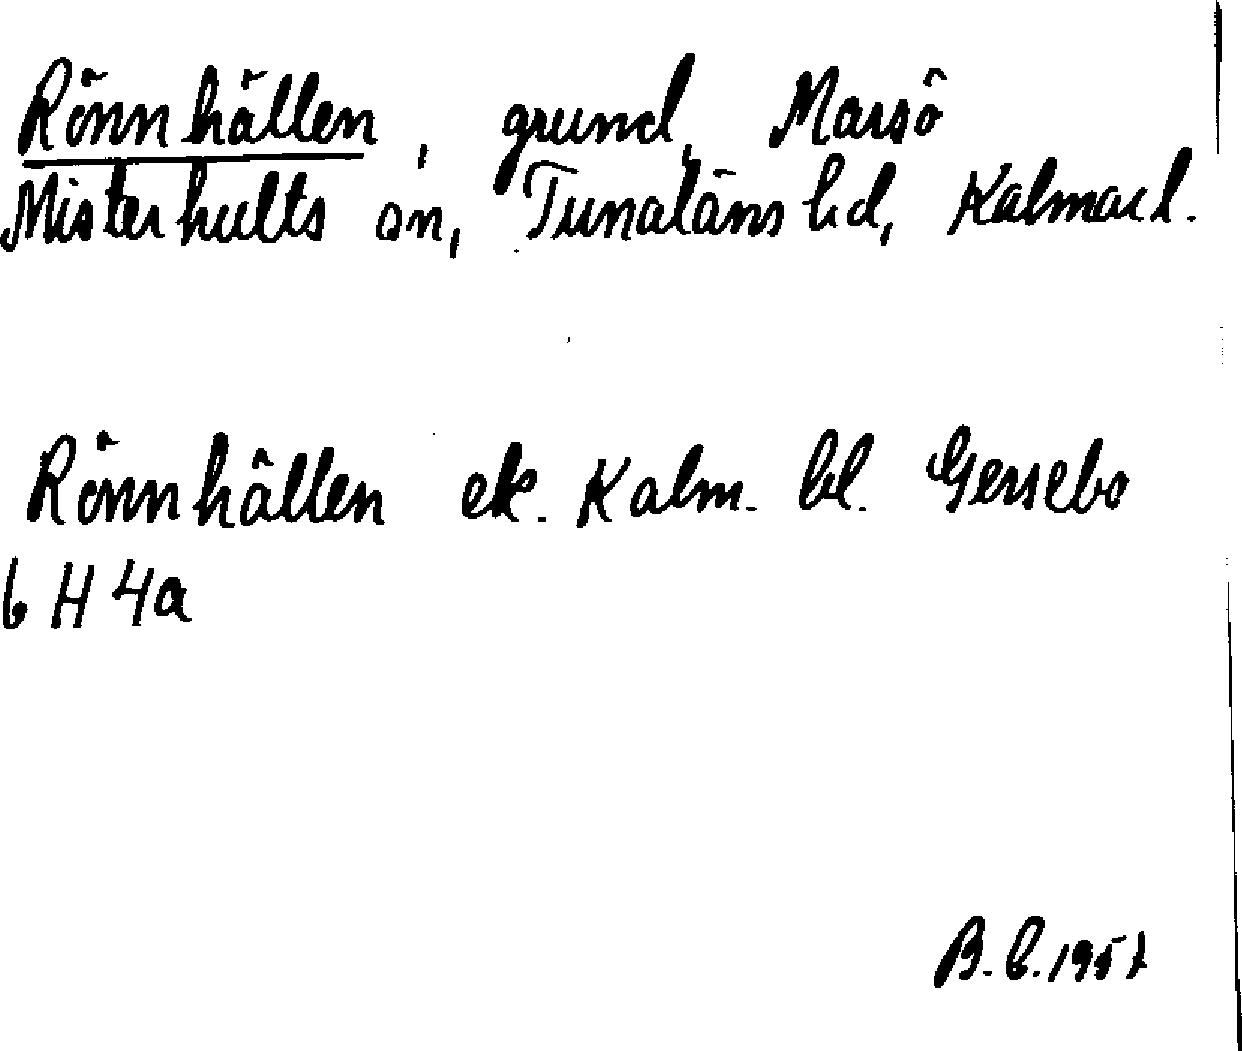 Rönnhällen, grund, Marsö
Misterhults sn, Tunaläns hd, Kalmar l.
Rönnhällen ek. Kalm. bl. Gersebo
6 H 4a
B.C. 1957